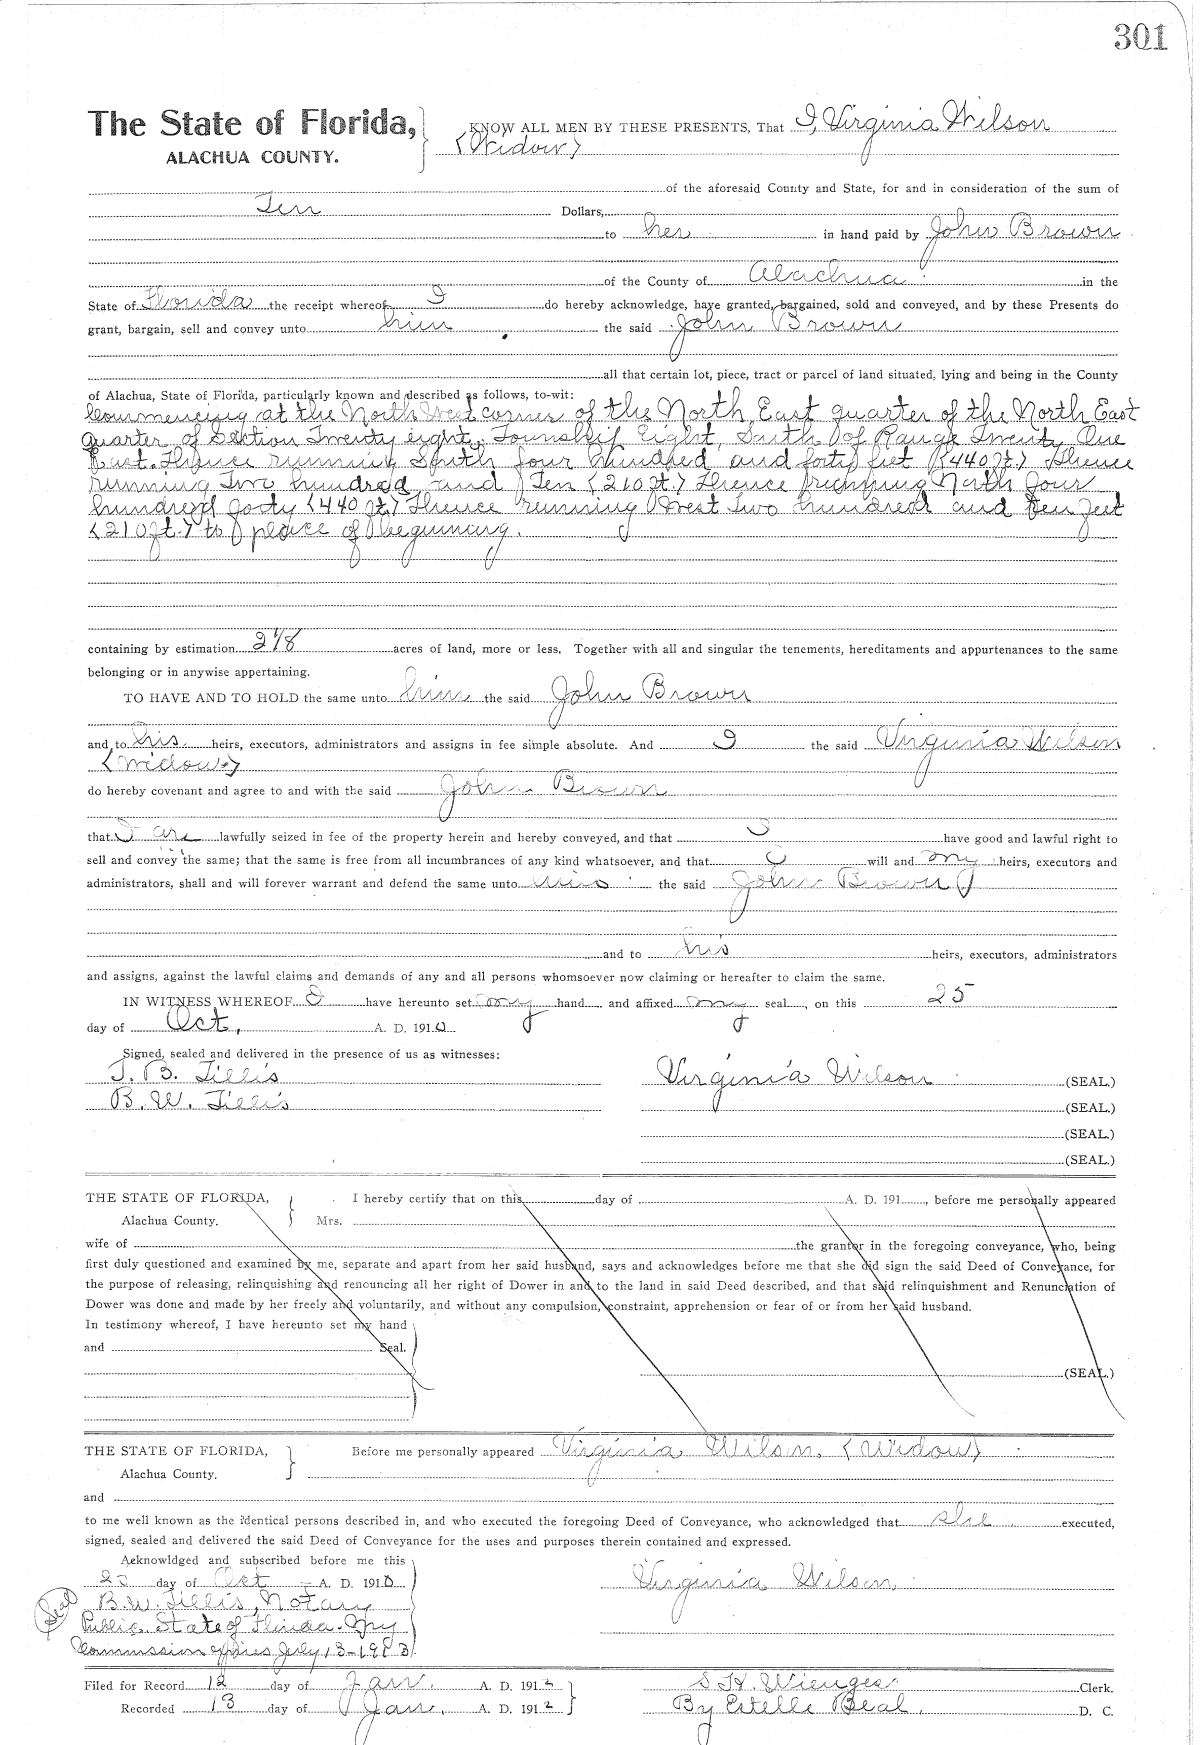 301
The State of Florida, KNOW ALL MEN BY THESE PRESENTS, That I, Virginia Wilson
ALACHUA COUNTY. (Widow)
of the aforesaid County and State, for and in consideration of the sum of
Ten Dollars,
to her in hand paid by John Brown
of the County of Alachua in the
State of Florida the receipt whereof I do hereby acknowledge, have granted, bargained, sold and conveyed, and by these Presents do
grant, bargain, sell and convey unto him the said John Brown
all that certain lot, piece, tract or parcel of land situated, lying and being in the County
of Alachua, State of Florida, particularly known and described as follows, to-wit:
Commencing at the North West corner of the North East quarter of the North East
quarter of Section Twenty eight, Township Eight, South of Range Twenty One
East. Thence running South four hundred and forty feet (440 ft.) Thence
running Two hundred and Ten (210 ft.) Thence running North Four
hundred forty (440 ft.) Thence running West Two hundred and Ten feet
(210 ft.) to place of beginning.
containing by estimation 2 1/8 acres of land, more or less. Together with all and singular the tenements, hereditaments and appurtenances to the same
belonging or in anywise appertaining.
TO HAVE AND TO HOLD the same unto him the said John Brown
and to his heirs, executors, administrators and assigns in fee simple absolute. And I the said Virginia Wilson
(Widow)
do hereby covenant and agree to and with the said John Brown
that I are lawfully seized in fee of the property herein and hereby conveyed, and that I have good and lawful right to
sell and convey the same; that the same is free from all incumbrances of any kind whatsoever, and that I will and my heirs, executors and
administrators, shall and will forever warrant and defend the same unto the said John Brown
and to his heirs, executors, administrators
and assigns, against the lawful claims and demands of any and all persons whomsoever now claiming or hereafter to claim the same.
IN WITNESS WHEREOF I have hereunto set my hand and affixed my seal, on this 25
day of Oct, A. D. 1910
Signed, sealed and delivered in the presence of us as witnesses:
J. B. Tillis Virginia Wilson (SEAL.)
B. W. Tillis (SEAL.)
(SEAL.)
(SEAL.)
THE STATE OF FLORIDA, I hereby certify that on this day of A. D. 191 , before me personally appeared
Alachua County. Mrs.
wife of the grantor in the foregoing conveyance, who, being
first duly questioned and examined by me, separate and apart from her said husband, says and acknowledges before me that she did sign the said Deed of Conveyance, for
the purpose of releasing, relinquishing and renouncing all her right of Dower in and to the land in said Deed described, and that said relinquishment and Renunciation of
Dower was done and made by her freely and voluntarily, and without any compulsion, constraint, apprehension or fear of or from her said husband.
In testimony whereof, I have hereunto set my hand
and Seal.
(SEAL.)
THE STATE OF FLORIDA, Before me personally appeared Virginia Wilson (Widow)
Alachua County.
and
to me well known as the identical persons described in, and who executed the foregoing Deed of Conveyance, who acknowledged that she executed,
signed, sealed and delivered the said Deed of Conveyance for the uses and purposes therein contained and expressed.
Acknowldged and subscribed before me this
25 day of Oct A. D. 1910 Virginia Wilson
(Seal) B. W. Tillis, Notary
Public State of Florida. My
Commission expires July 13
Filed for Record 12 day of Jan. A. D. 1912 S. H. Wienges Clerk.
Recorded 13 day of Jan. A. D. 1912 By Estelle Beal, D. C.